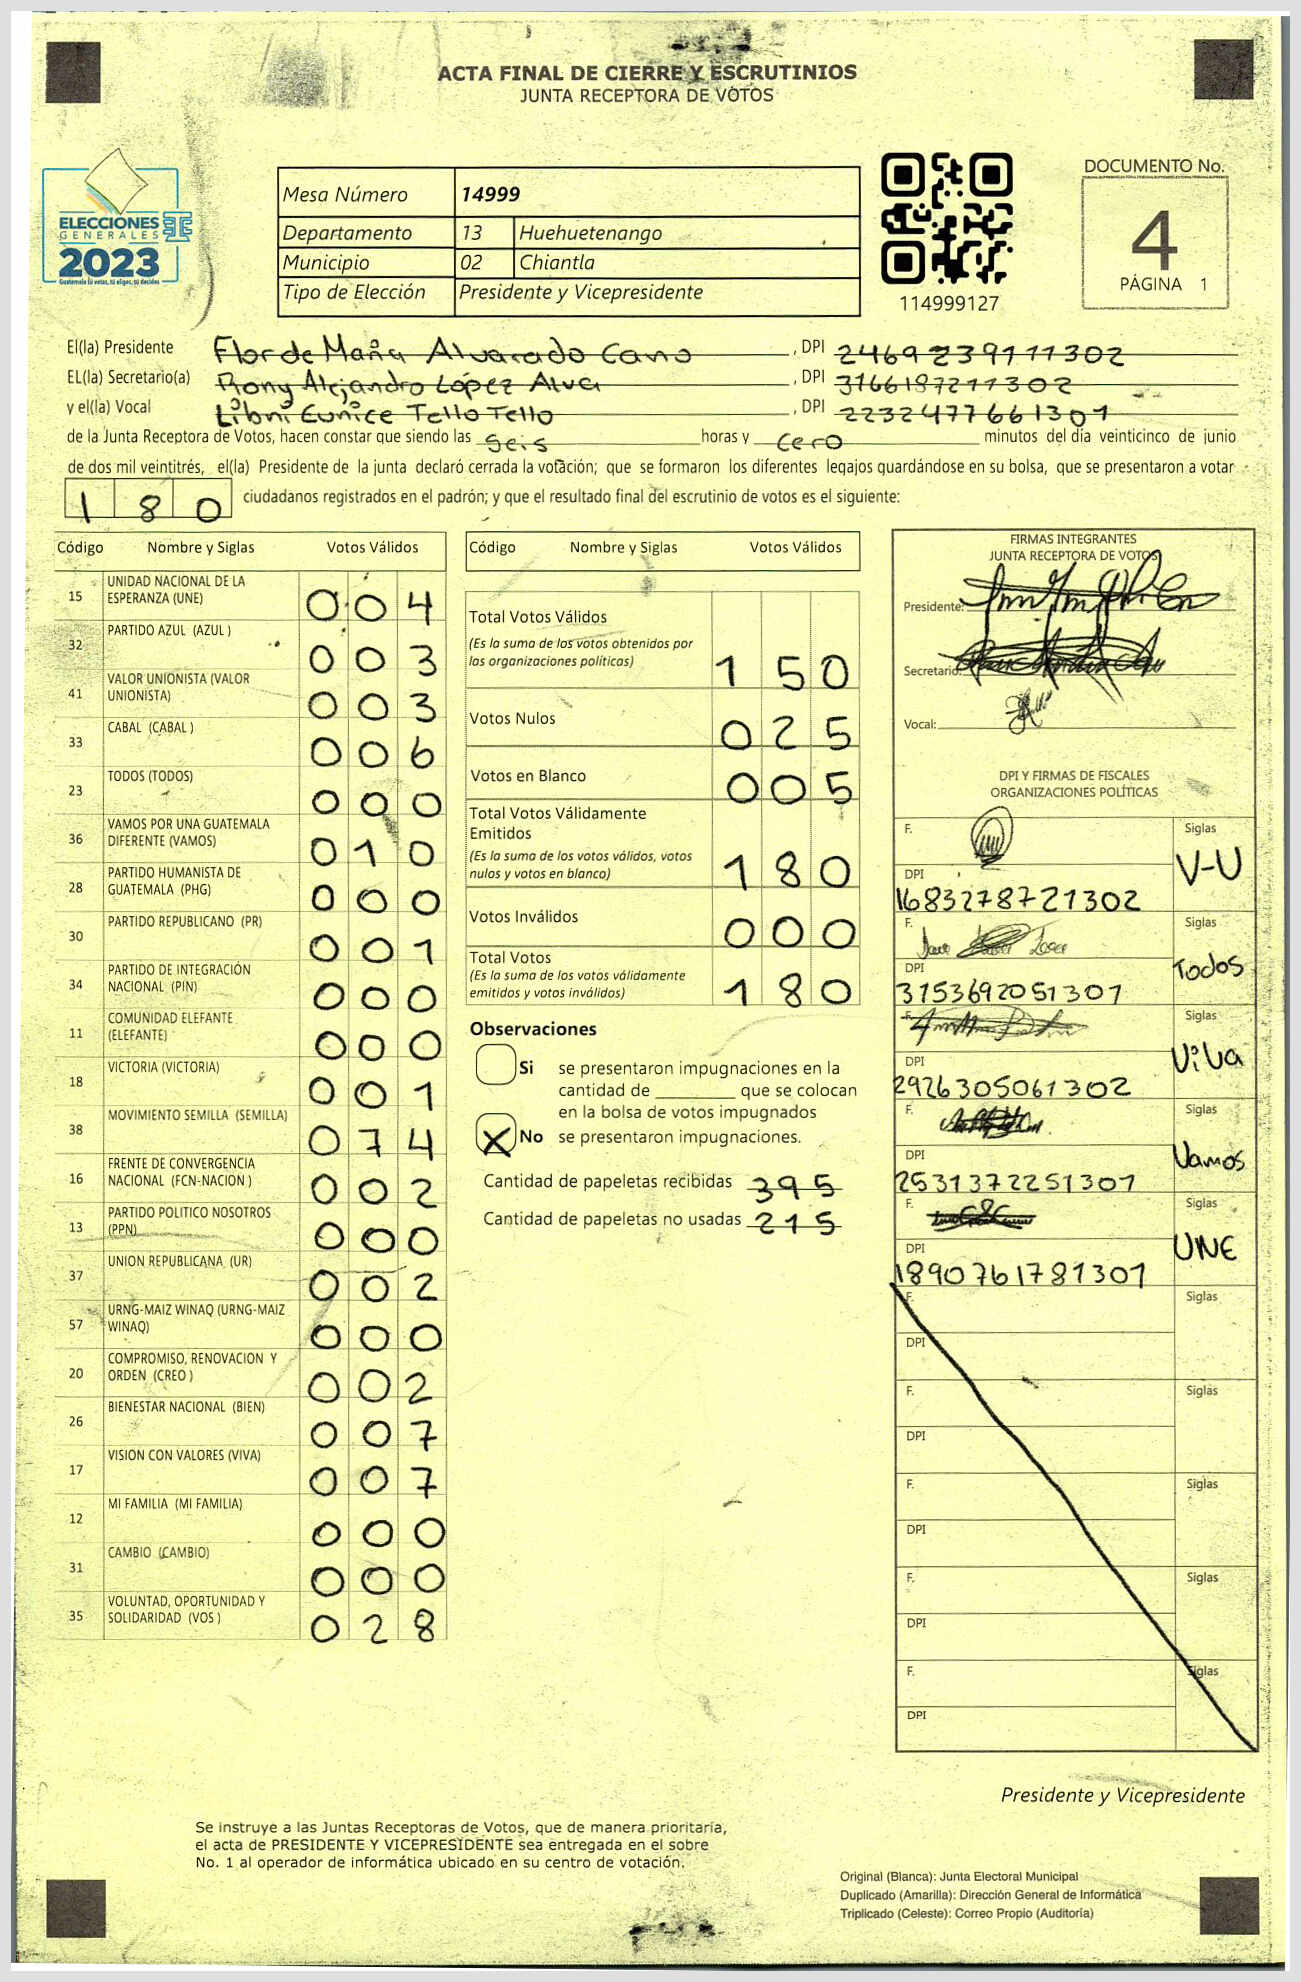 ACTA FINAL DE CIERRE Y ESCRUTINIOS
JUNTA RECEPTORA DE VOTOS
ELECCIONES
GENERALES
2023
Guatemala tú votas, tú eliges, tú decides
Mesa Número 14999
Departamento 13 Huehuetenango
Municipio 02 Chiantla
Tipo de Elección Presidente y Vicepresidente
114999127
DOCUMENTO No.
4
PÁGINA 1
El(la) Presidente Flor de María Alvarado Cano, DPI 2469239111302
EL(la) Secretario(a) Rony Alejandro López Alva, DPI 3166187211302
y el(la) Vocal Libni Eunice Tello Tello, DPI 2232477661301
de la Junta Receptora de Votos, hacen constar que siendo las seis horas y cero minutos del día veinticinco de junio
de dos mil veintitrés, el(la) Presidente de la junta declaró cerrada la votación; que se formaron los diferentes legajos guardándose en su bolsa, que se presentaron a votar
180 ciudadanos registrados en el padrón; y que el resultado final del escrutinio de votos es el siguiente:
Código Nombre y Siglas Votos Válidos
15 UNIDAD NACIONAL DE LA ESPERANZA (UNE) 004
32 PARTIDO AZUL (AZUL ) 003
41 VALOR UNIONISTA (VALOR UNIONISTA) 003
33 CABAL (CABAL ) 006
23 TODOS (TODOS) 000
36 VAMOS POR UNA GUATEMALA DIFERENTE (VAMOS) 010
28 PARTIDO HUMANISTA DE GUATEMALA (PHG) 000
30 PARTIDO REPUBLICANO (PR) 001
34 PARTIDO DE INTEGRACIÓN NACIONAL (PIN) 000
11 COMUNIDAD ELEFANTE (ELEFANTE) 000
18 VICTORIA (VICTORIA) 001
38 MOVIMIENTO SEMILLA (SEMILLA) 074
16 FRENTE DE CONVERGENCIA NACIONAL (FCN-NACION ) 002
13 PARTIDO POLITICO NOSOTROS (PPN) 000
37 UNION REPUBLICANA (UR) 002
57 URNG-MAIZ WINAQ (URNG-MAIZ WINAQ) 000
20 COMPROMISO, RENOVACION Y ORDEN (CREO ) 002
26 BIENESTAR NACIONAL (BIEN) 007
17 VISION CON VALORES (VIVA) 007
12 MI FAMILIA (MI FAMILIA) 000
31 CAMBIO (CAMBIO) 000
35 VOLUNTAD, OPORTUNIDAD Y SOLIDARIDAD (VOS ) 028
Código Nombre y Siglas Votos Válidos
Total Votos Válidos
(Es la suma de los votos obtenidos por
las organizaciones políticas) 150
Votos Nulos 025
Votos en Blanco 005
Total Votos Válidamente
Emitidos
(Es la suma de los votos válidos, votos
nulos y votos en blanco) 180
Votos Inválidos 000
Total Votos
(Es la suma de los votos válidamente
emitidos y votos inválidos) 180
Observaciones
Si se presentaron impugnaciones en la
cantidad de ________ que se colocan
en la bolsa de votos impugnados
X No se presentaron impugnaciones.
Cantidad de papeletas recibidas 395
Cantidad de papeletas no usadas 215
FIRMAS INTEGRANTES
JUNTA RECEPTORA DE VOTOS
Presidente:
Secretario:
Vocal:
DPI Y FIRMAS DE FISCALES
ORGANIZACIONES POLÍTICAS
F. Siglas V-U
DPI 1683278721302
F. Siglas Todos
DPI 3153692051301
F. Siglas Viva
DPI 2926305061302
F. Siglas Vamos
DPI 2531372251301
F. Siglas UNE
DPI 1890761781301
F. Siglas
DPI
F. Siglas
DPI
F. Siglas
DPI
F. Siglas
DPI
F. Siglas
DPI
Presidente y Vicepresidente
Se instruye a las Juntas Receptoras de Votos, que de manera prioritaria,
el acta de PRESIDENTE Y VICEPRESIDENTE sea entregada en el sobre
No. 1 al operador de informática ubicado en su centro de votación.
Original (Blanca): Junta Electoral Municipal
Duplicado (Amarilla): Dirección General de Informática
Triplicado (Celeste): Correo Propio (Auditoría)